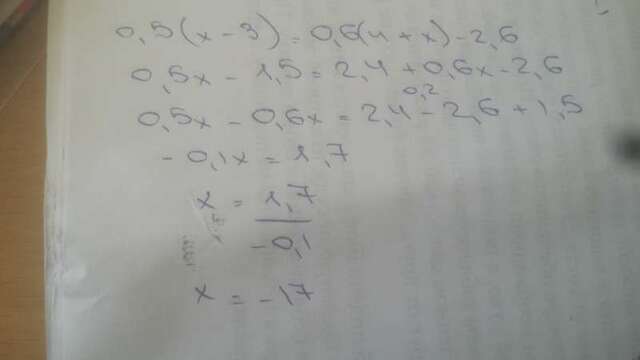 0,5(x-3) = 0,6(4+x)-2,6
0,5x - 1,5 = 2,4 + 0,6x - 2,6
0,2
0,5x - 0,6x = 2,4 - 2,6 + 1,5
- 0,1x = 1,7
x = 1,7
-0,1
x = -17